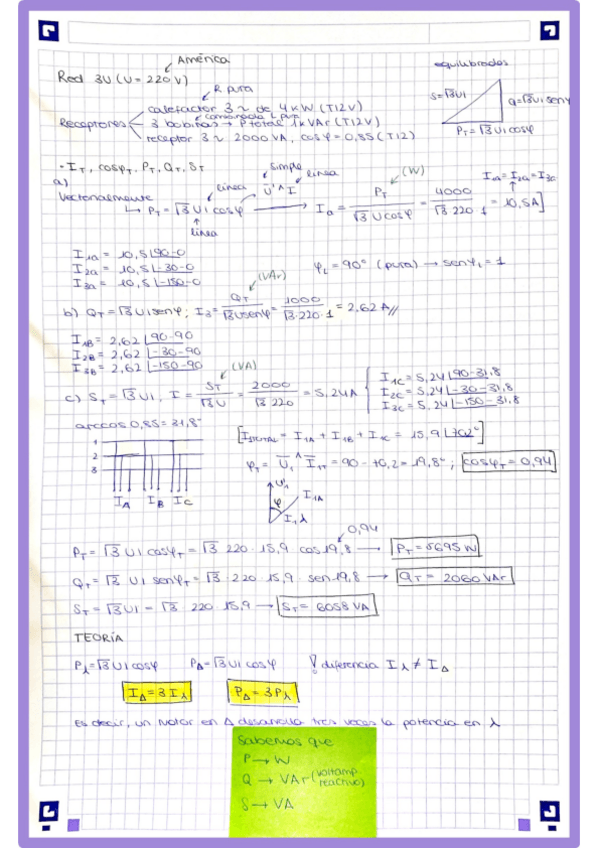 América
Red 3U (U = 220V)
equilibrados
R pura
S=√3UI
Q=√3UI senφ
PT=√3UI cosφ
Receptores
calefactor 3~ de 4KW (T12V)
conexión λ pura
3 bobinas → P total 1KVAr (T12V)
receptor 3~ 2000VA, cosφ=0,85 (T12)
- IT, cosφT, PT, QT, ST
a)
Vectorialmente
↳ PT = √3 UI cosφ
línea
línea
simple
línea
U'^I
Ia = PT / √3 U cosφ = 4000 / √3·220·1 = 10,5A]
(W)
I1a = I2a = I3a
I1a = 10,5 |90-0
I2a = 10,5 |-30-0
I3a = 10,5 |-150-0
φL = 90° (pura) → senφL = 1
(VAr)
b) QT = √3 UI senφ; I3 = QT / √3 U senφ = 1000 / √3·220·1 = 2,62A//
I1B = 2,62 |90-90
I2B = 2,62 |-30-90
I3B = 2,62 |-150-90
(VA)
c) ST = √3 UI, I = ST / √3 U = 2000 / √3 220 = 5,24A
I1C = 5,24 |90-31,8
I2C = 5,24 |-30-31,8
I3C = 5,24 |-150-31,8
arccos 0,85 = 31,8°
1
2
3
IA IB IC
[ITOTAL = I1A + I1B + I1C = 15,9 |70,2°]
φT = U1 ^ I1T = 90 - 70,2 = 19,8°; cosφT = 0,94
U'1
φ
I1A
I1λ
0,94
PT = √3 UI cosφT = √3 · 220 · 15,9 cos 19,8 → PT = 5695 W
QT = √3 UI senφT = √3 · 220 · 15,9 · sen 19,8 → QT = 2060 VAr
ST = √3 UI = √3 · 220 · 15,9 → ST = 6058 VA
TEORÍA
Pλ = √3 UI cosφ PΔ = √3 UI cosφ ! diferencia Iλ ≠ IΔ
IΔ = 3 Iλ PΔ = 3Pλ
Es decir, un motor en Δ desarrolla tres veces la potencia en λ
Sabemos que
P → W
Q → VAr (voltamp. reactivo)
S → VA